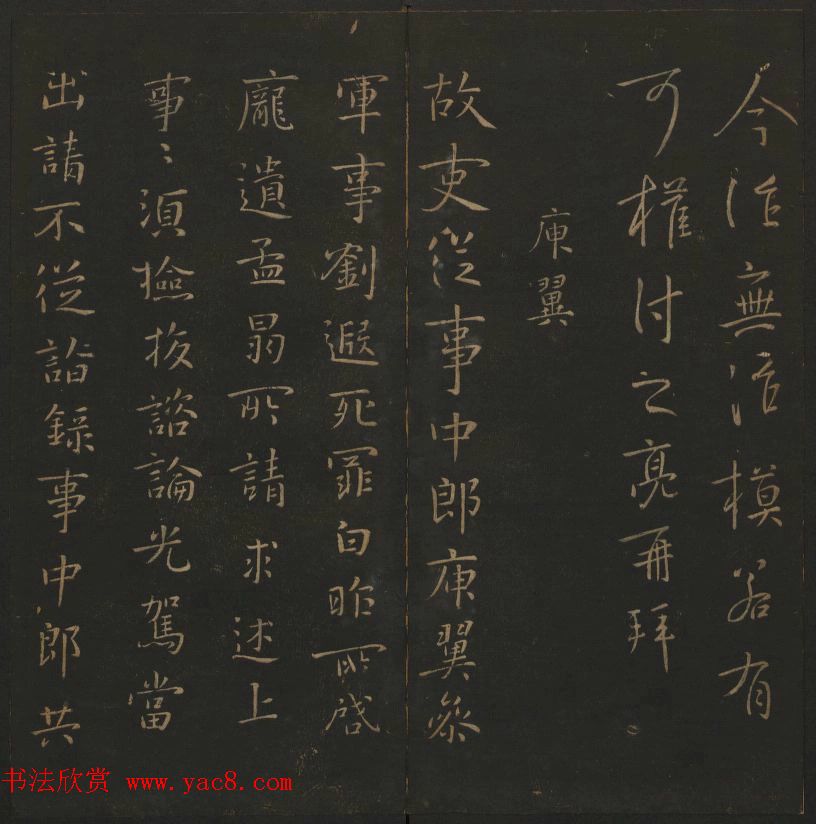 今無模若有
可權付之亮再拜
庾翼
故吏從事中郎庾翼參
軍事劉遐死罪白昨所啓
龐遺孟昺所請求述上
事〻須撿校諮論光駕當
出請不從詣錄事中郎共
书法欣赏 www.yac8.com